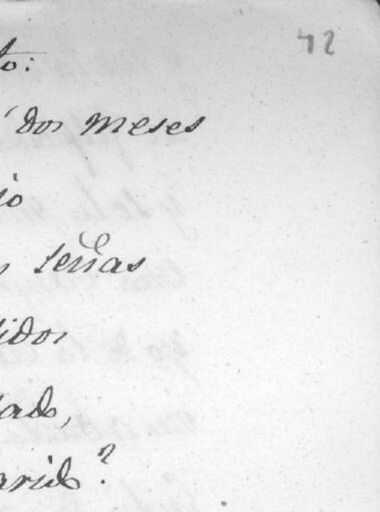 42
to:
dos meses
io
señas
idos
ad,
arid?